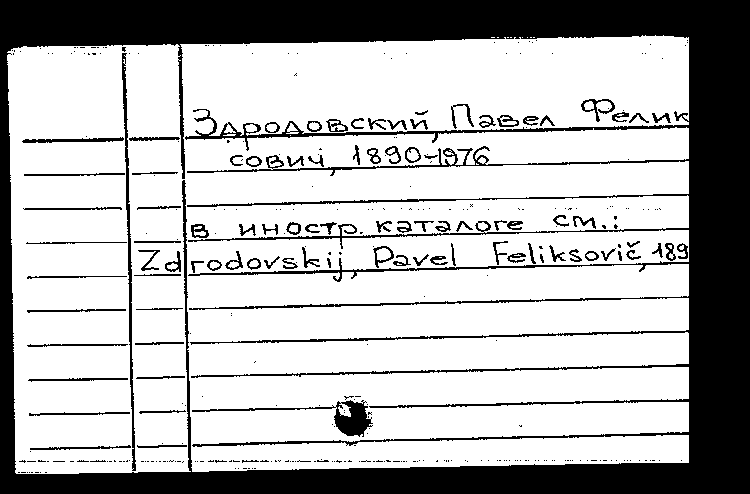 Здродовский, Павел Фелик
сович, 1890-1976
в иностр. каталоге см.:
Zdrodovskij, Pavel Feliksovič, 189